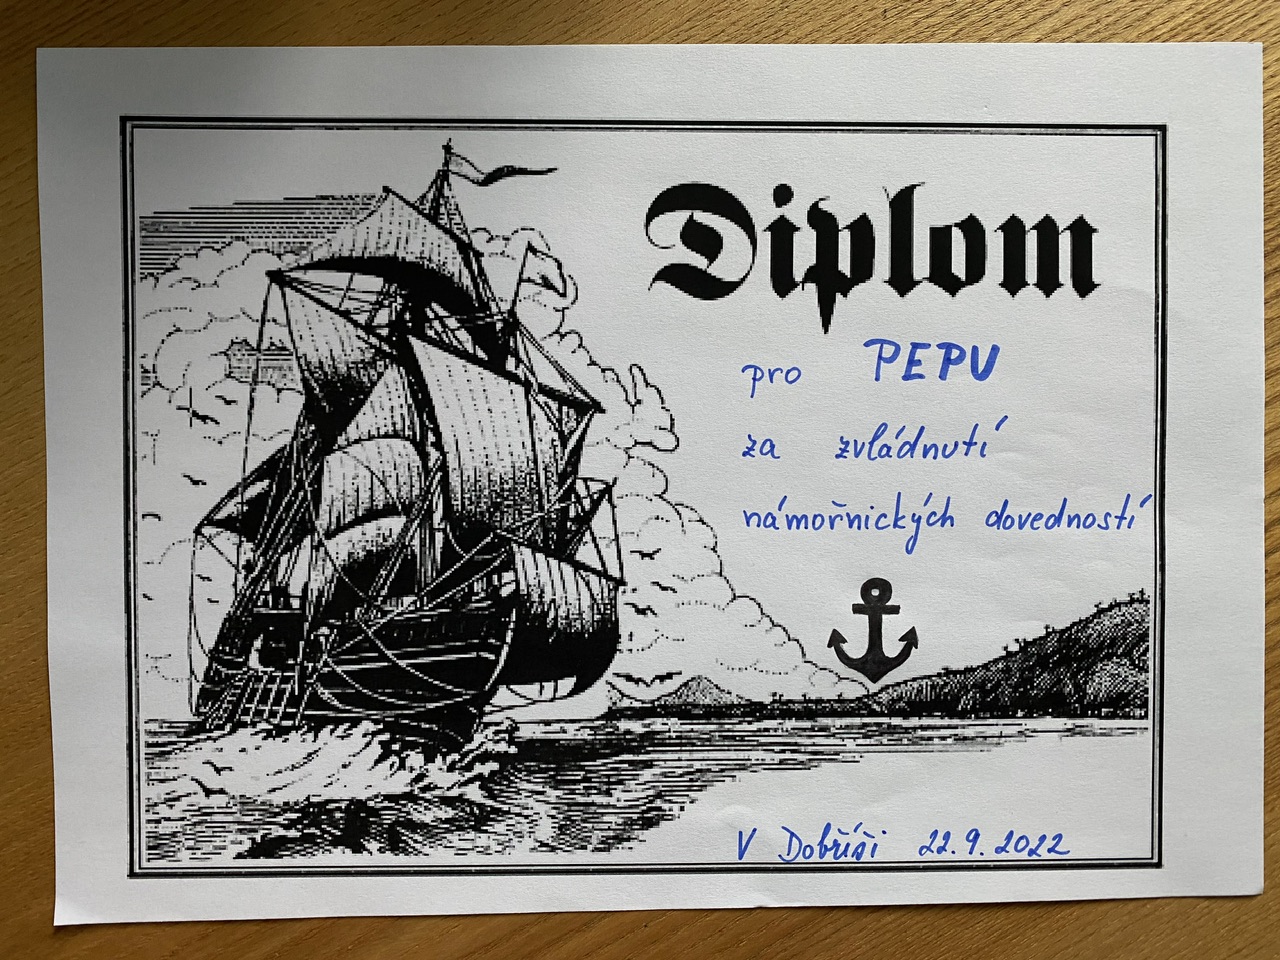 Diplom
pro PEPU
za zvládnutí
námořnických dovedností
V Dobříši 22.9.2022